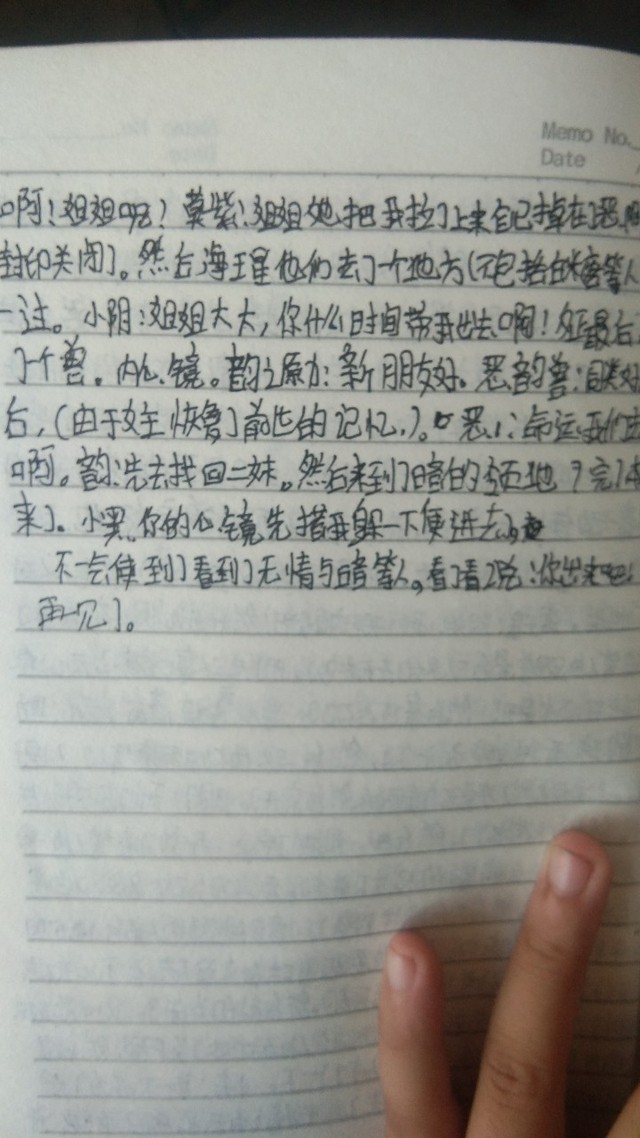 Memo No.
Date
啊！姐姐呢？莫紫！姐姐她把我拉了上来自己掉在了恶
封印关闭了。然后海王星他们去了一个地方（不包括白糖等人
一过。小阴：姐姐大大，你什么时间带我出去啊！在最后
了个兽。内心镜。韵之原力：新朋友好。恶韵兽：同类好
后，（由于女王恢复了前世的记忆，）。恶：命运
啊。韵：先去找回二妹。然后来到了暗的领地？完了
来了。小黑，你的心镜先搭我躲一下便进去
不一会便到了看到了无情与暗等人。看了看说：你出来吧
再一次了。